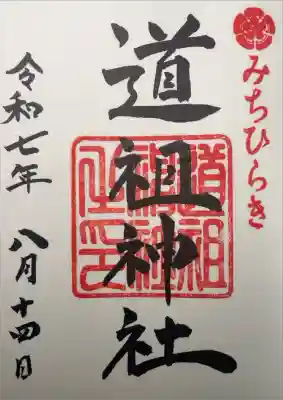 みちひらき
道祖神社
令和七年 八月十四日